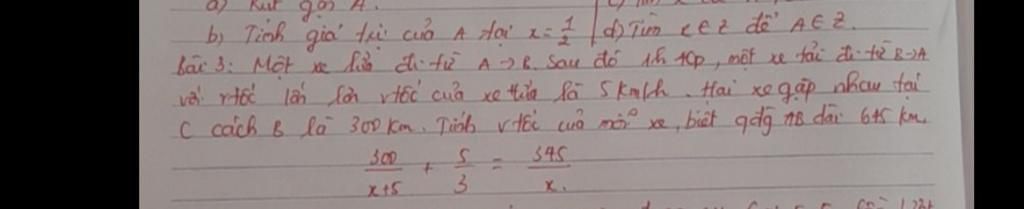 a) Rút gọn A.
b) Tính giá trị của A tại x = 1/2 | d) Tìm x ∈ Z để A ∈ Z.
Bài 3: Một xe lửa đi từ A → B. Sau đó 1h 40p, một xe tải đi từ B → A
với vtốc lớn hơn vtốc của xe lửa là 5 km/h. Hai xe gặp nhau tại
C cách B là 300 km. Tính vtốc của mỗi xe, biết qđg AB dài 645 km.
300/(x+5) + 5/3 = 345/x.